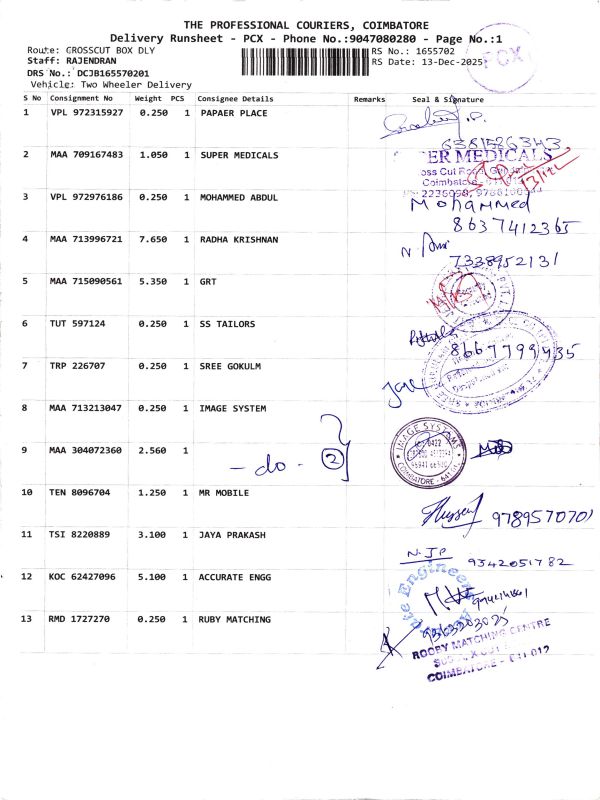 THE PROFESSIONAL COURIERS, COIMBATORE
Delivery Runsheet - PCX - Phone No.:9047080280 - Page No.:1
Route: CROSSCUT BOX DLY
RS No.: 1655702
PCX
Staff: RAJENDRAN
RS Date: 13-Dec-2025
DRS No.: DCJB165570201
Vehicle: Two Wheeler Delivery
S No Consignment No Weight PCS Consignee Details Remarks Seal & Signature
1 VPL 972315927 0.250 1 PAPAER PLACE
6381526343
2 MAA 709167483 1.050 1 SUPER MEDICALS
ER MEDICALS
oss Cut Road
Coimbatore
2236098
3 VPL 972976186 0.250 1 MOHAMMED ABDUL Mohammed
8637412365
4 MAA 713996721 7.650 1 RADHA KRISHNAN
7338952131
5 MAA 715090561 5.350 1 GRT
6 TUT 597124 0.250 1 SS TAILORS
8667799435
7 TRP 226707 0.250 1 SREE GOKULM
8 MAA 713213047 0.250 1 IMAGE SYSTEM
IMAGE SYSTEMS
COIMBATORE
9 MAA 304072360 2.560 1
- do - 2
10 TEN 8096704 1.250 1 MR MOBILE
9789570701
11 TSI 8220889 3.100 1 JAYA PRAKASH
N. JP 9342051782
12 KOC 62427096 5.100 1 ACCURATE ENGG
Engineer
13 RMD 1727270 0.250 1 RUBY MATCHING
9363203025
ROOBY MATCHING CENTRE
COIMBATORE - 641 012